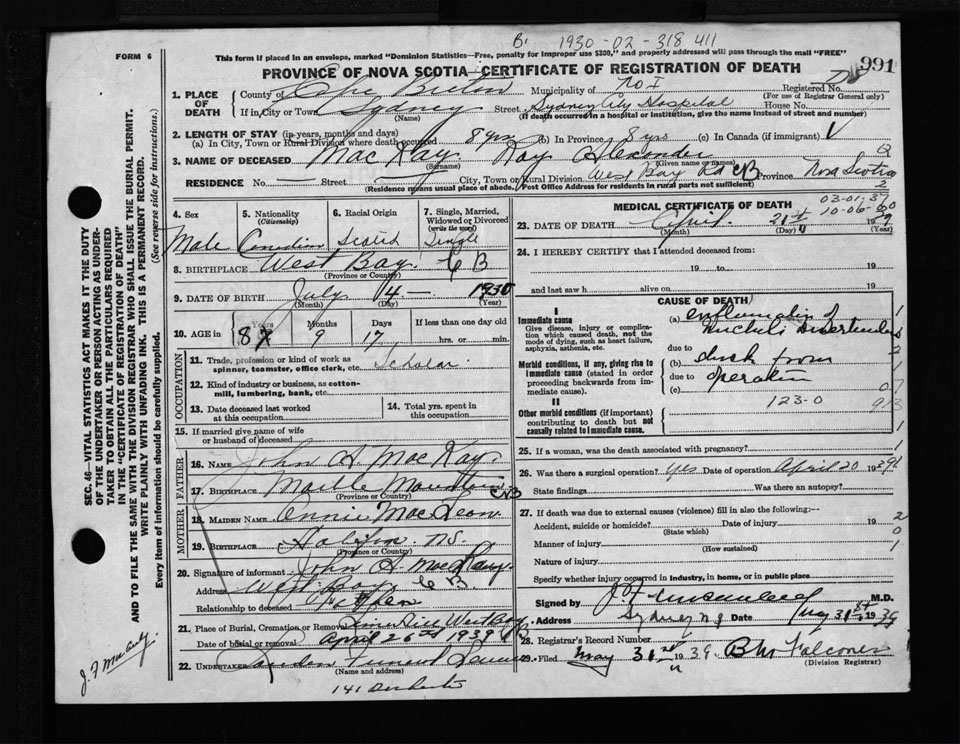 B. 1930-02-318 411
FORM 6
This form if placed in an envelope, marked "Dominion Statistics—Free, penalty for improper use $300," and property addressed will pass through the mail "FREE"
991
PROVINCE OF NOVA SCOTIA—CERTIFICATE OF REGISTRATION OF DEATH
1. PLACE OF DEATH
County of Cape Breton Municipality of No I Registered No.
(For use of Registrar General only)
If in City or Town Sydney Street Sydney City Hospital House No.
(Name) (If death occurred in a hospital or institution, give the name instead of street and number)
2. LENGTH OF STAY (in years, months and days)
(a) In City, Town or Rural Division where death occurred 8 yrs (b) In Province 8 yrs (c) In Canada (if immigrant)
3. NAME OF DECEASED Mac Kay Roy Alexander
(Surname) (Given name or names)
RESIDENCE No. Street City, Town or Rural Division West Bay Rd CB Province Nova Scotia
(Residence means usual place of abode. Post Office Address for residents in rural parts not sufficient)
4. Sex
5. Nationality (Citizenship)
6. Racial Origin
7. Single, Married, Widowed or Divorced (write the word)
Male Canadian Scotch Single
8. BIRTHPLACE West Bay C B
(Province or Country)
9. DATE OF BIRTH July 4 — 1930
(Month) (Day) (Year)
10. AGE in Years Months Days If less than one day old
8 9 17 hrs. or min.
OCCUPATION
11. Trade, profession or kind of work as spinner, teamster, office clerk, etc. Scholar
12. Kind of industry or business, as cotton-mill, lumbering, bank, etc.
13. Date deceased last worked at this occupation
14. Total yrs. spent in this occupation
15. If married give name of wife or husband of deceased
FATHER
16. NAME John A. MacKay
17. BIRTHPLACE Marble Mountain CB
(Province or Country)
MOTHER
18. MAIDEN NAME Annie MacLean
19. BIRTHPLACE Halifax NS.
(Province or Country)
20. Signature of informant John A MacKay
Address West Bay C B
Relationship to deceased
21. Place of Burial, Cremation or Removal West Bay CB
Date of burial or removal April 26th 1939
22. UNDERTAKER
(Name and address)
141 Dorchester
MEDICAL CERTIFICATE OF DEATH
03-01-37
10-06-60
23. DATE OF DEATH April 21st 19
(Month) (Day) (Year)
24. I HEREBY CERTIFY that I attended deceased from:
19 to 19
and last saw h alive on 19
CAUSE OF DEATH
I
Immediate cause
Give disease, injury or complication which caused death, not the mode of dying, such as heart failure, asphyxia, asthenia, etc.
Morbid conditions, if any, giving rise to immediate cause (stated in order proceeding backwards from immediate cause).
II
Other morbid conditions (if important) contributing to death but not causally related to immediate cause.
(a)
due to
(b) shock from
due to operation
(c)
123-0
25. If a woman, was the death associated with pregnancy?
26. Was there a surgical operation? yes Date of operation April 20 1939
State findings Was there an autopsy?
27. If death was due to external causes (violence) fill in also the following:—
Accident, suicide or homicide? Date of injury 19
(State which)
Manner of injury
(How sustained)
Nature of injury
Specify whether injury occurred in Industry, in home, or in public place
Signed by M.D.
Address Sydney NS Date May 31st 1939
28. Registrar's Record Number
29. Filed May 31st 1939 B M Falconer
(Division Registrar)
SEC. 46—VITAL STATISTICS ACT MAKES IT THE DUTY OF THE UNDERTAKER OR PERSON ACTING AS UNDERTAKER TO OBTAIN ALL THE PARTICULARS REQUIRED IN THE "CERTIFICATE OF REGISTRATION OF DEATH" AND TO FILE THE SAME WITH THE DIVISION REGISTRAR WHO SHALL ISSUE THE BURIAL PERMIT.
WRITE PLAINLY WITH UNFADING INK. THIS IS A PERMANENT RECORD.
Every item of information should be carefully supplied. (See reverse side for instructions.)